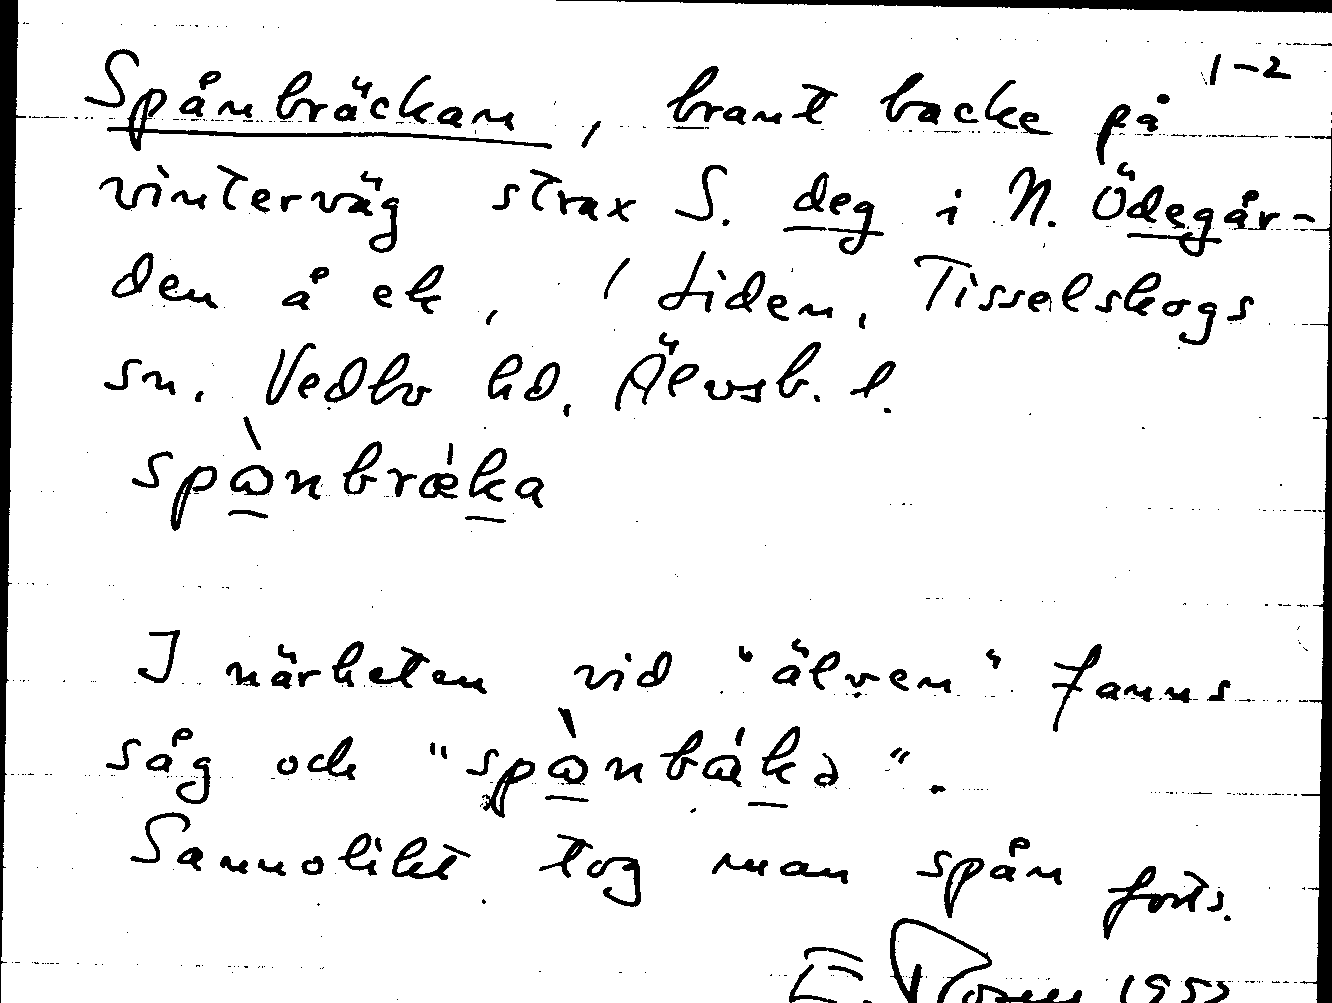 1-2
Spånbräckan, brant backe på
vinterväg strax S. deg i N. Ödegår-
den å ek, / Liden, Tisselskogs
sn. Vedbo hd, Älvsb. l.
spὼnbrǽka
I närheten vid "älven" fanns
såg och "spὼnbákə".
Sannolikt tog man spån forts.
E. 1952